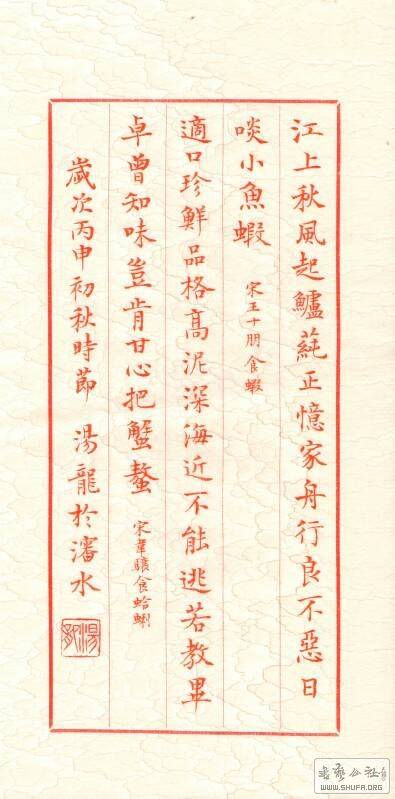 江上秋風起鱸蓴正憶家舟行良不惡日
啖小魚蝦 宋王十朋食蝦
適口珍鮮品格高泥深海近不能逃若教畢
卓曾知味豈肯甘心把蟹螯 宋韋驤食蛤蜊
歲次丙申初秋時節 湯龍於瀋水
湯龍
WWW.SHUFA.ORG